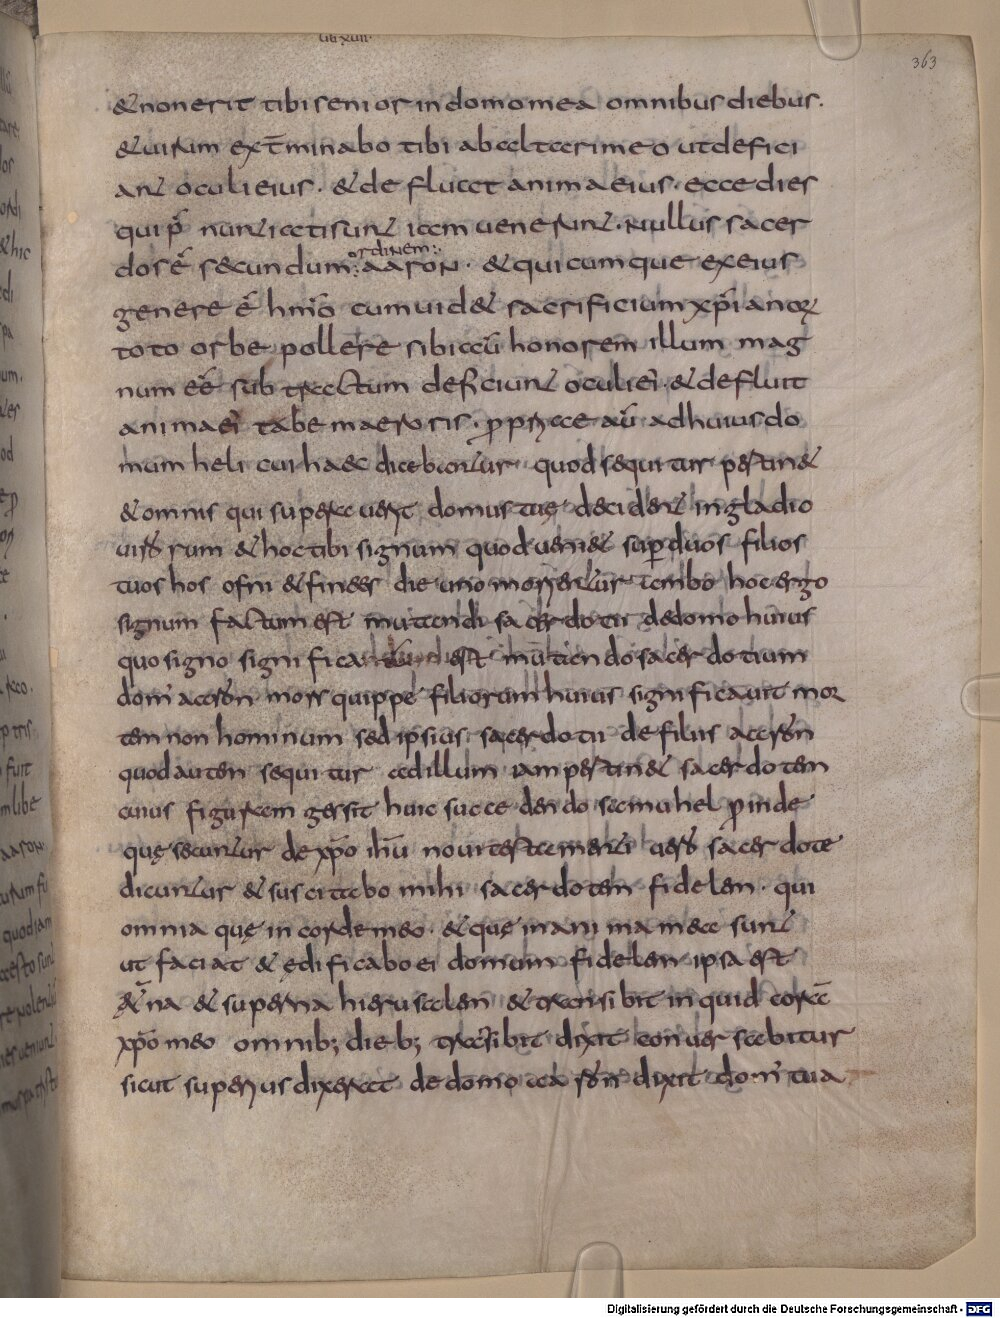 lib xvii
363
& non erit tibi senior in domo mea omnibus diebus.
& uirum ext̄minabo tibi ab altari meo ut defici
ant oculi eius. & defluat anima eius. ecce dies
qui p̄ nuntiati sunt iam uenerunt. nullus sacer
ordinem:
dos ē secundum: aaron. & quicumque ex eius
genere ē hom̄o cum uid& sacrificium xp̄ianoꝝ
toto orbe pollere sibi au̅ honorem illum mag
num eē sub tractum deficiunt oculi ei̅. & defluit
anima ei̅ tabe maeroris. ꝓprie au̅ ad huius do
mum heli cui haec dicebantur quod sequitur pertin&
& omnis qui superauerit domus tuę decident in gladio
uirorum & hoc tibi signum quod ueni& sup̄ duos filios
tuos hos ofni & finees die uno morientur ambo hoc ergo
signum factum est mutandi sacerdotii de domo huius
quo signo significa est mutando sacerdotium
dom̄ aaron mors quippe filiorum huius significauit mor
tem non hominum sed ipsius sacerdotii de filiis aaron
quod autem sequitur ad illum iam pertin& sacerdotem
cuius figuram gessit huic succedendo samuhel proinde
quę secuntur de xp̄o ihu̅ noui testamenti uero sacerdote
dicuntur & suscitabo mihi sacerdotem fidelem. qui
omnia quę in corde meo. & quę in anima mea sunt
ut faciat & ędificabo ei domum fidelem ipsa est
&̄na & superna hierusalem & transibit inquid coram
xp̄o meo omnib; dieb; transibit dixit conuersabitur
sicut superius dixerat de domo aaron dixit dom̄ tua
Digitalisierung gefördert durch die Deutsche Forschungsgemeinschaft - DFG